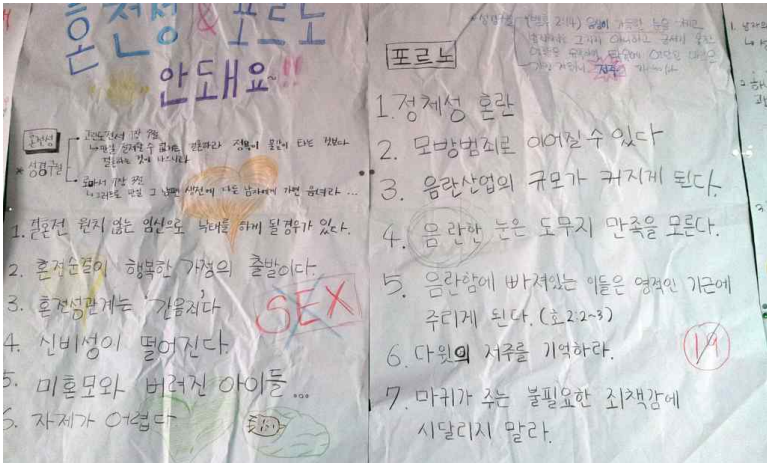 혼전성 & 포르노
안돼요~!!
혼전성
* 성경구절
고린도전서 7장 9절
로마서 7장 3절
1. 결혼전 원치 않는 임신으로 낙태를 하게 될 경우가 있다.
2. 혼전순결이 행복한 가정의 출발이다.
3. 혼전성관계는 '간음죄'다
4. 신비성이 떨어진다.
5. 미혼모와 버려진 아이들...
6. 자제가 어렵다
SEX
포르노
1. 정체성 혼란
2. 모방범죄로 이어질 수 있다
3. 음란산업의 규모가 커지게 된다.
4. 음란한 눈은 도무지 만족을 모른다.
5. 음란함에 빠져있는 이들은 영적인 기근에
주리게 된다. (호2:2~3)
6. 다윗의 저주를 기억하라.
7. 마귀가 주는 불필요한 죄책감에
시달리지 말라.
19